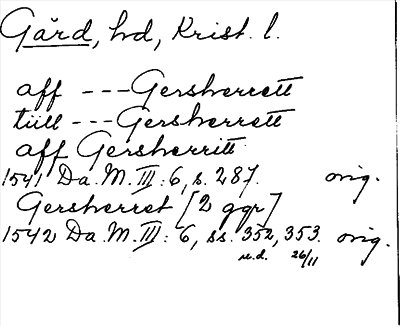 Gård, hd, Krist. l.
aff --- Gersherrett
tüll --- Gersherrett
aff Gersherritt
1541 Da. M. III: 6, s. 287. orig.
Gersherret [2 ggr]
1542 Da. M. III: 6, ss. 352, 353. orig.
u.d. 26/11